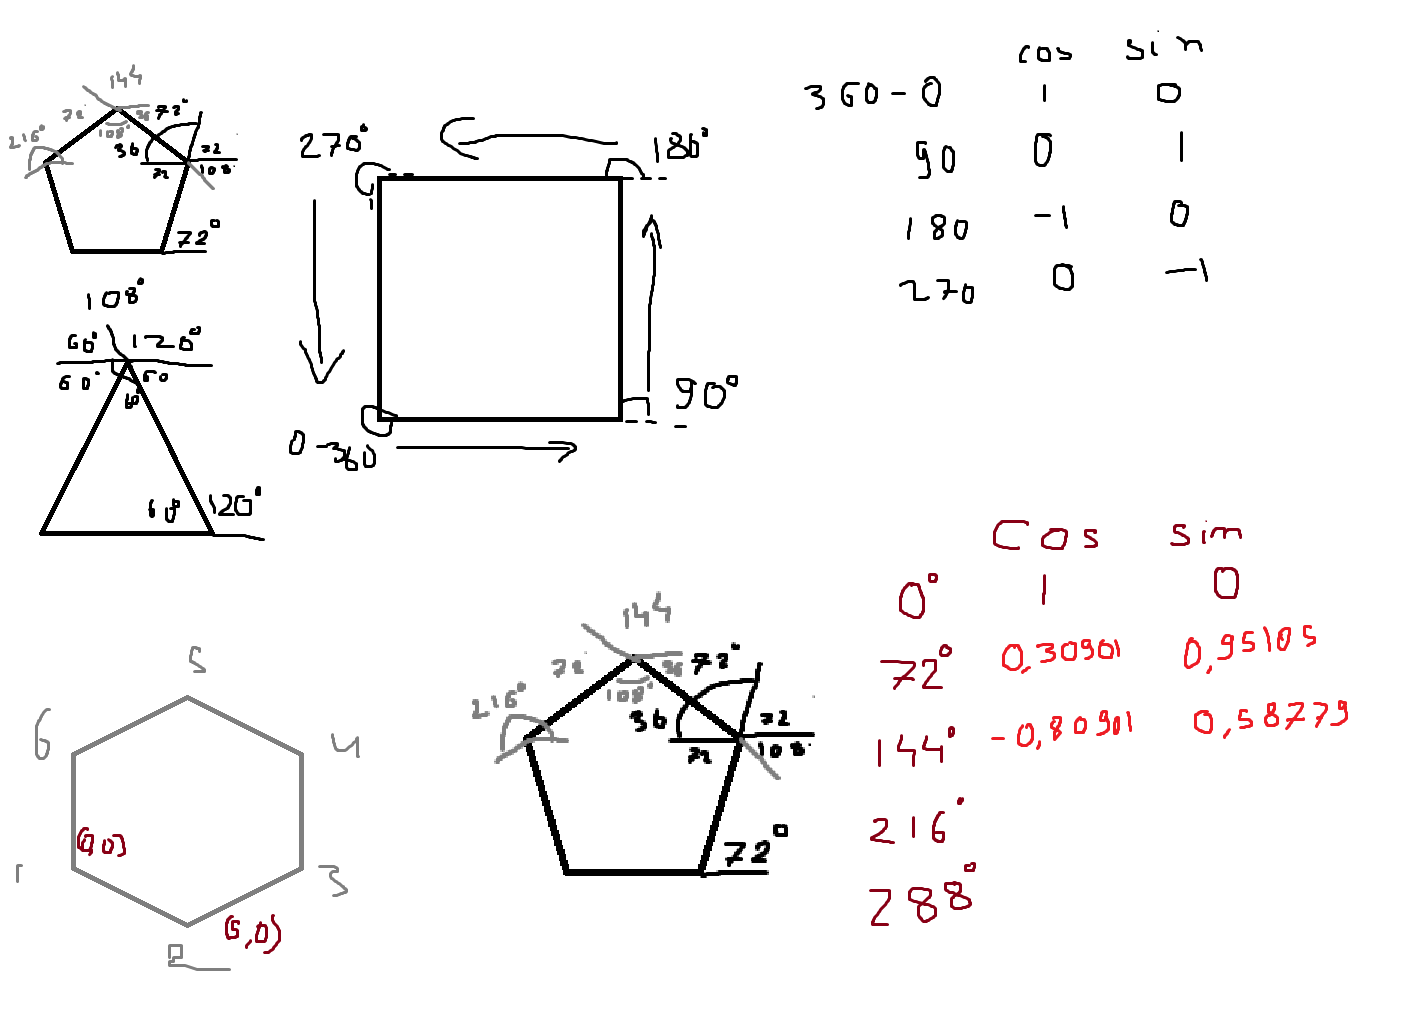 144
72
36
72°
108°
216°
36
72
72
108
72°
108°
60°
120°
60°
60
60
60°
120°
270°
180°
90°
0-360
cos sin
360-0 1 0
90 0 1
180 -1 0
270 0 -1
5
6
4
(0,0)
1
3
(5,0)
2
144
72
36
72°
108°
216°
36
72
72
108
72°
Cos sin
0° 1 0
72° 0,30901 0,95105
144° -0,80901 0,58779
216°
288°